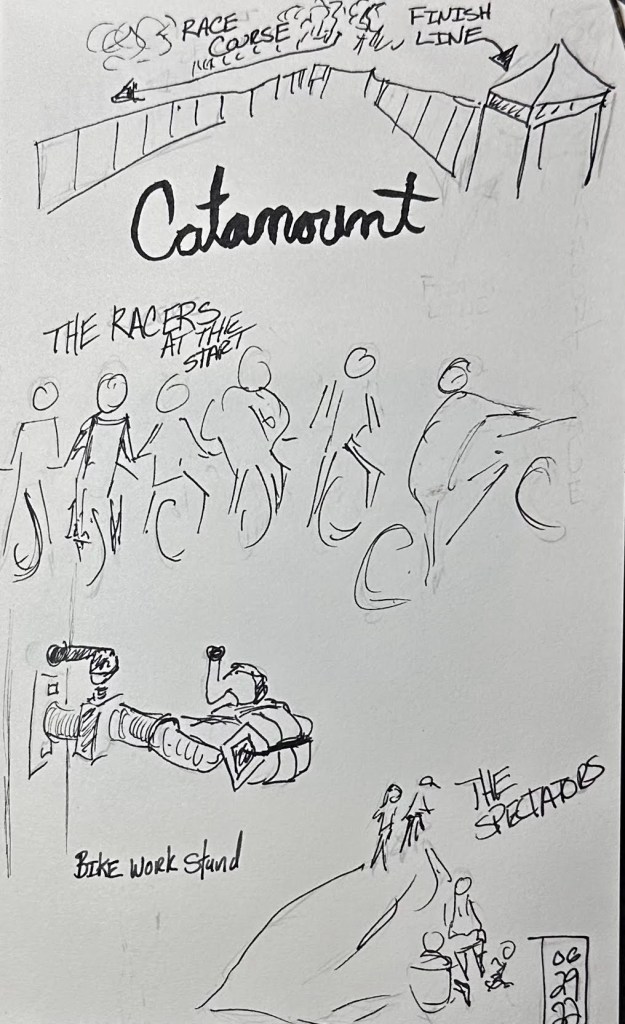 RACE
COURSE
FINISH
LINE
Catamount
THE RACERS
AT THE
START
BIKE WORK Stand
THE
SPECTATORS
29